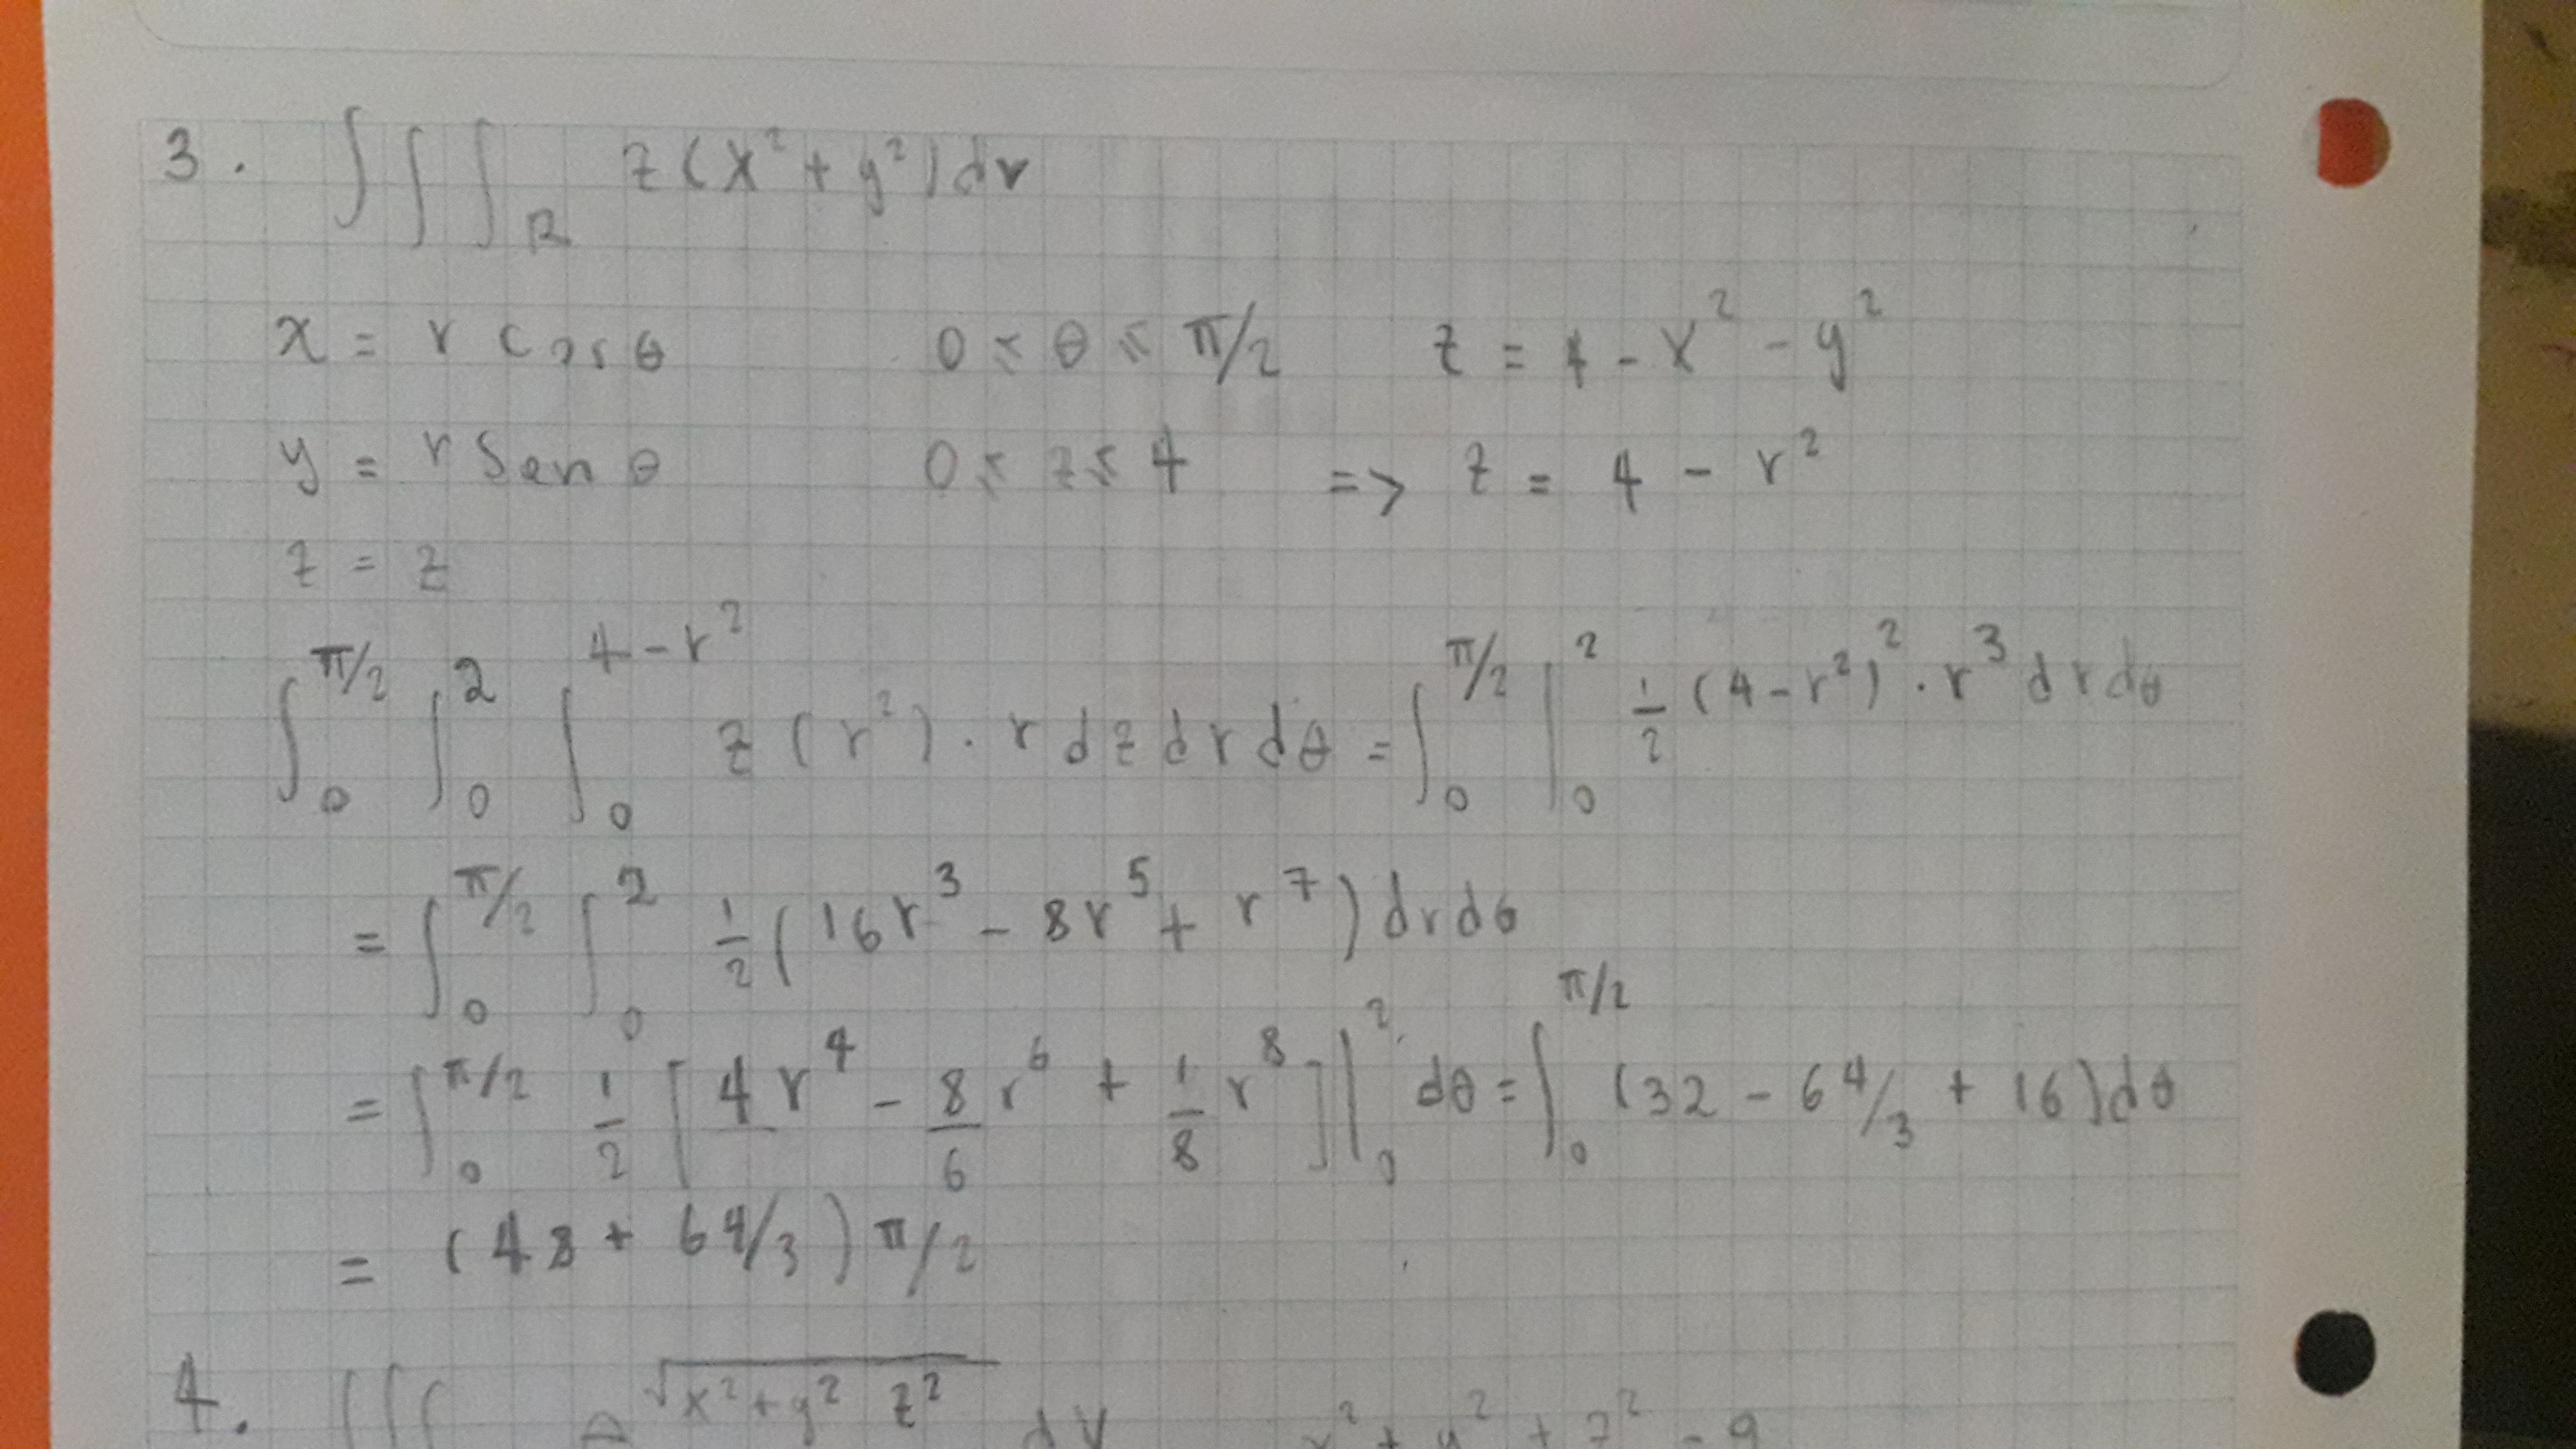 3. ∫∫∫_R z(x² + y²)dv
x = r cos θ    0 ≤ θ ≤ π/2    z = 4 - x² - y²
y = r sen θ    0 ≤ z ≤ 4    => z = 4 - r²
z = z
∫₀^{π/2} ∫₀² ∫₀^{4-r²} z(r²)·r dz dr dθ = ∫₀^{π/2} ∫₀² 1/2 (4-r²)²·r³ dr dθ
= ∫₀^{π/2} ∫₀² 1/2 (16r³ - 8r⁵ + r⁷) dr dθ
= ∫₀^{π/2} 1/2 [4r⁴ - 8/6 r⁶ + 1/8 r⁸]|₀² dθ = ∫₀^{π/2} (32 - 64/3 + 16)dθ
= (48 + 64/3) π/2
4. ∫∫∫ √x² + y² z² dV x² + y² + z² = 9